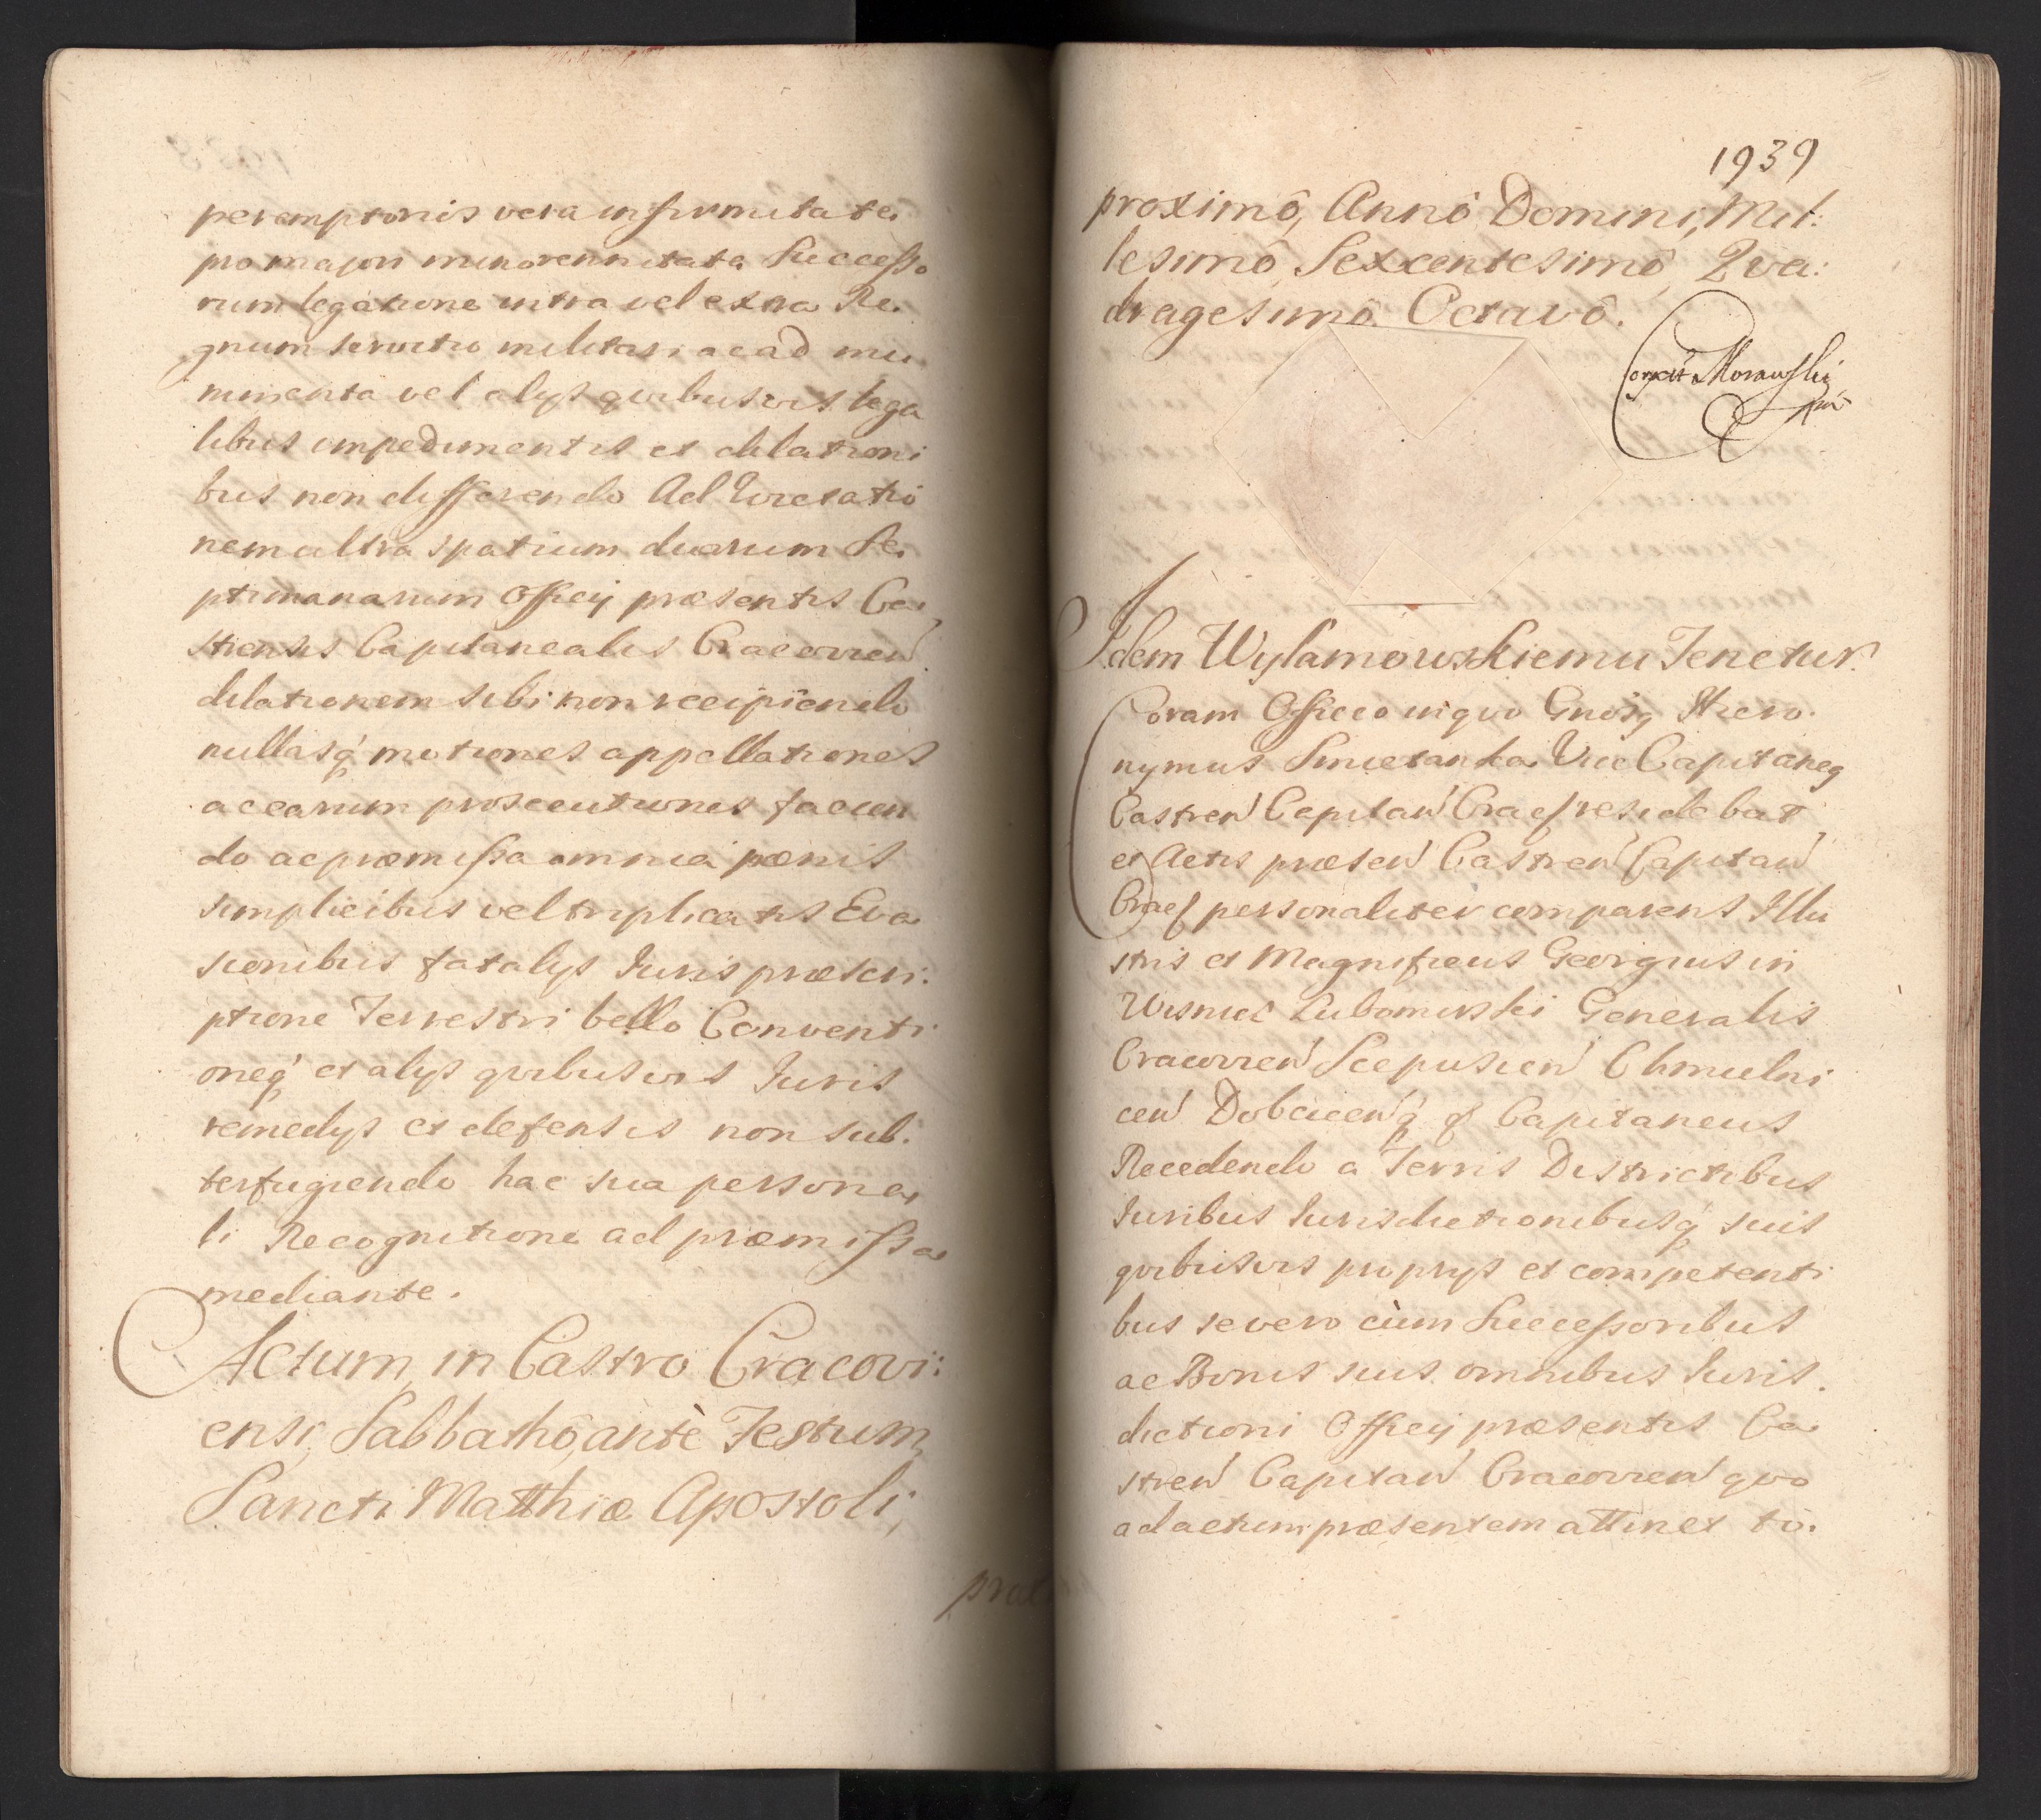 peremptoriis vera infirmitate
pro majori minorennitate Successo
rum legatione intra vel extra Re
gnum servitio militari ac ad mu
nimenta vel alys quibusvis lega
libus impedimentis et dilationi
bus non differendo Ad Evocatio
nem ultra spatium duarum Se
ptimanarum Officy præsentis Ca
strensis Capitanealis Cracovien
dilationem sibi non recipiendo
nullasq motiones appellationes
ac earum prosecutiones facien
do ac præmissa omnia pænis
simplicibus vel triplicatis Eva
sionibus fatalys Iuris præscri:
ptione Terrestri bello Conventi
oneq et alys quibusvis Iuris
remedys et defensis non sub.
terfugiendo hac sua persona
li Recognitione ad præmissa
mediante.
Actum in Castro Cracovi:
ensi, Sabbathô, antè Festum
Sancti Matthiæ Apostoli,
prox
1939
proximô, Annô Domini, Mil:
lesimô Sexcentesimô Qva:
dragesimô Octavô.
Correxit Morawski
mp
Idem Wylamowskiemu Tenetur.
Coram Officio inquo Gnosq Hiero
nymus Smietanka Vice Capitaneq
Castren Capitan Cracf residebat
et Actis præsen Castren Capitan
Cracf personaliter comparens Illu
stris et Magnificus Georgius in
Wisnicz Lubomirski Generalis
Cracovien Scepusien Chmielni
cen Dobcicenq & Capitaneus
Recedendo a Terris Districtibus
Iuribus Iurisdictionibusq suis
quibusvis proprys et competenti
bus se vero cùm Successoribus
ac Bonis suis omnibus Iuris.
dictioni Officy præsentis Ca
stren Capitan Cracovien quo
ad actum præsentem attinet to.